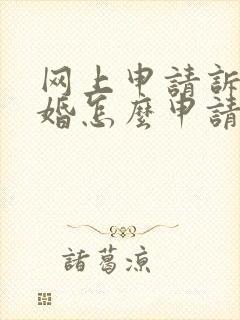 网上申請訴
婚怎麼申請
諸葛凉